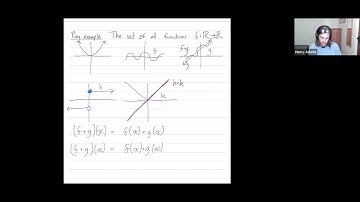 Ring example The set of all functions f: ℝ→ℝ
f
f+g
g
h
h+k
k
(f+g)(x) = f(x)+g(x)
(f·g)(x) = f(x)·g(x)
Henry Adams